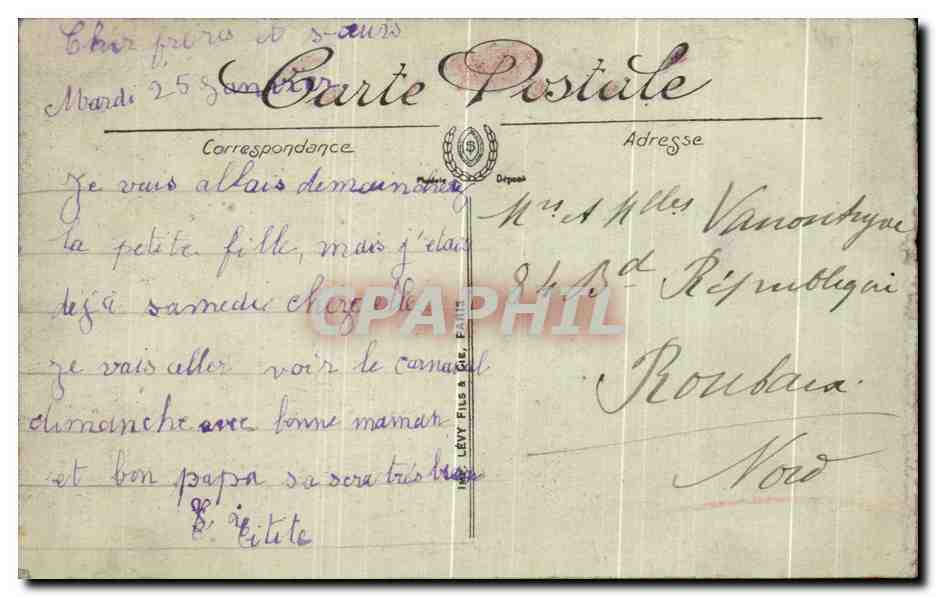 Cher frères et sœurs
Mardi 25 Janvier
Carte Postale
Correspondance
Adresse
Modèle Déposé
Je vais allais demain
la petite fille, mais j'étais
déjà samedi chez elle
je vais aller voir le carnaval
dimanche avec bonne maman
et bon papa sa sera très bien
Titite
IMP. LÉVY FILS & CIE, PARIS
Mrs et Mlles
84 Bd République
Roubaix
Nord
CPAPHIL